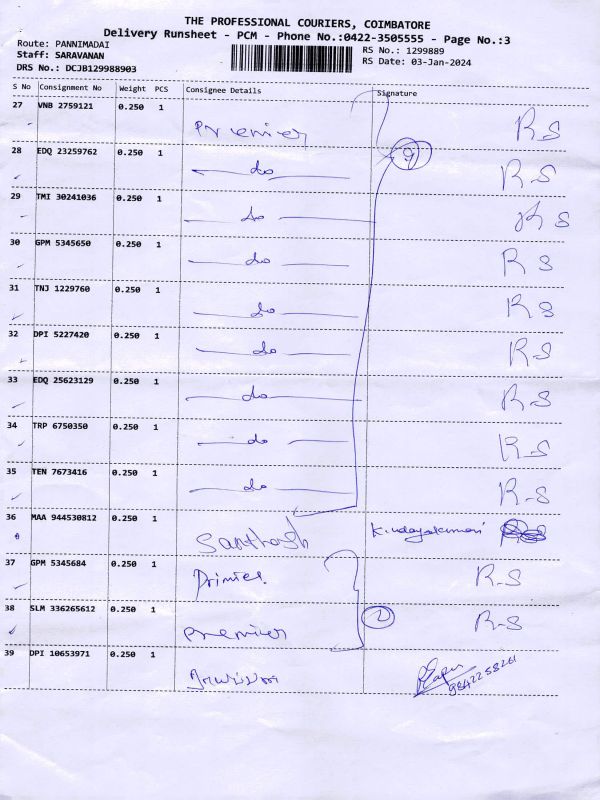 THE PROFESSIONAL COURIERS, COIMBATORE
Delivery Runsheet - PCM - Phone No.:0422-3505555 - Page No.:3
Route: PANNIMADAI
RS No.: 1299889
Staff: SARAVANAN
RS Date: 03-Jan-2024
DRS No.: DCJB129988903
S No Consignment No Weight PCS Consignee Details Signature
27 VNB 2759121 0.250 1
Premier RS
28 EDQ 23259762 0.250 1 9
do R-S
29 TMI 30241036 0.250 1
do RS
30 GPM 5345650 0.250 1
do RS
31 TNJ 1229760 0.250 1
do RS
32 DPI 5227420 0.250 1
do R-S
33 EDQ 25623129 0.250 1
do R-S
34 TRP 6750350 0.250 1
do R-S
35 TEN 7673416 0.250 1
do R-S
36 MAA 944530812 0.250 1
Santhosh K. Udayakumari
37 GPM 5345684 0.250 1
Primier R-S
38 SLM 336265612 0.250 1 2
Premier R-S
39 DPI 10653971 0.250 1